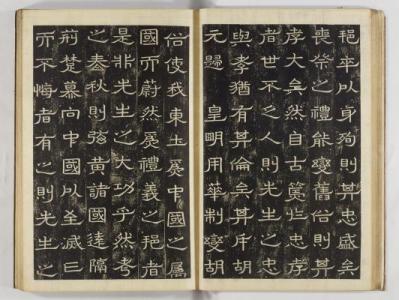 邦卒以身殉則其忠盛矣
喪祭之禮能變舊俗則其
孝大矣然自古篤於忠孝
者世不乏人則先生之忠
與孝猶有其倫矣其斥胡
元歸 皇明用華制變胡
俗使我東土爲中國之屬
國而蔚然爲禮義之邦者
是非先生之大功乎然考
之春秋則弦黃諸國逺隔
荊楚慕向中國以至滅亡
而不悔者有之則先生之